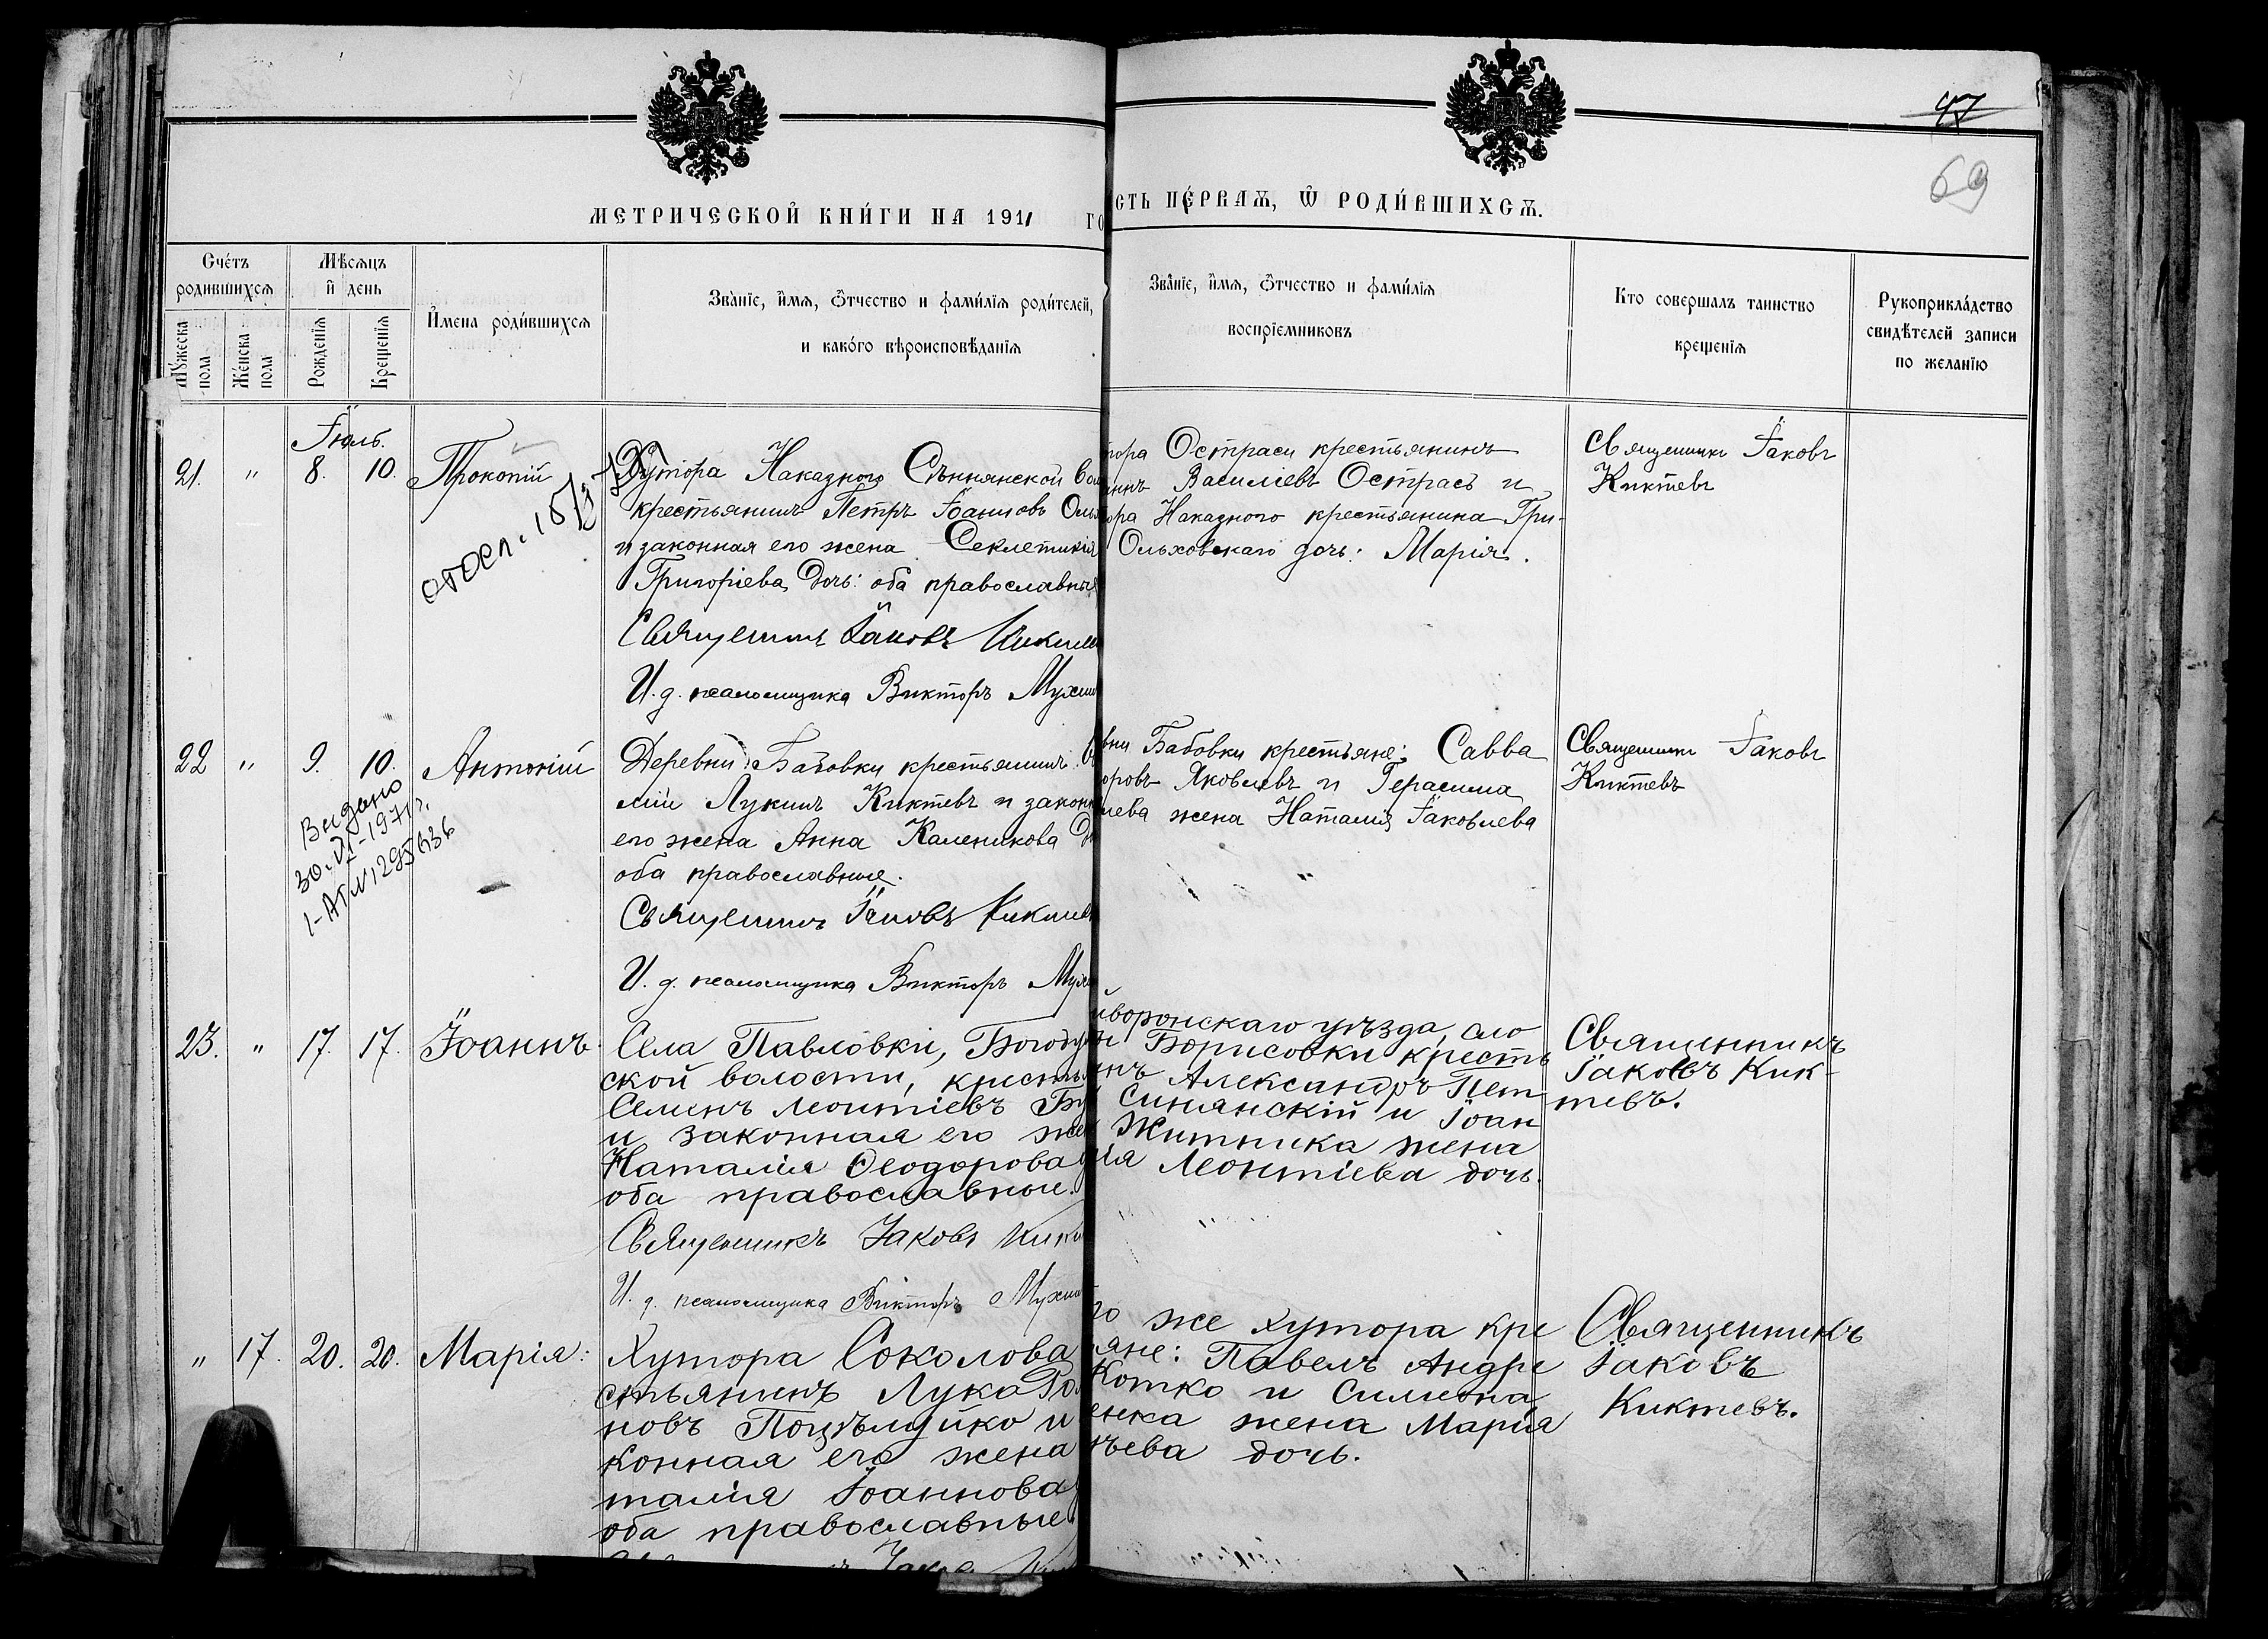 47
69
МЕТРИЧЕСКОЙ КНИ́ГИ НА 1911 ГО
СТЬ ПЕ́РВАѦ, Ѿ РОДИ́ВШИХСѦ.
Счéтъ родившихсѧ
Мѣсѧцъ и день
Мужеска пола
Же́нска пола
Рожденїѧ
Крещенїѧ
Имена роди́вшихсѧ
Зва́нїе, имѧ, ѻтчество и фами́лїѧ роди́телей,
и како́го вѣроисповѣданїѧ
Зва́нїе, имѧ, ѻтчество и фами́лїѧ
воспрїемниковъ
Кто совершалъ таинство
крещенїѧ
Рукоприкла́дство
свидѣтелей записи
по желанїю
Іюль.
21. " 8. 10. Прокопій
Хутора Наказного Сѣннянской во
крестьянинъ Петръ Іоанновъ Оль
и законная его жена Секлетикія
Григоріева дочь: оба православные
Священникъ Іаковъ Киктев
И. д. псаломщика Викторъ Мухин
тора Остраси крестьянинъ
Василіевъ Острась и
ора Наказного крестьянина Гри-
Ольховскаго дочь: Марія.
Священникъ Іаковъ
Киктевъ
22 " 9. 10. Антоній
Выдано
30-VI-1971г.
Деревни Бабовки крестьянинъ
лій Лукинъ Киктевъ и законн
его жена Анна Каленикова до
оба православные.
Священникъ Іаковъ Киктев
И. д. псаломщика Викторъ Мухин
вни Бабовки крестьяне: Савва
оровъ Яковлевъ и Герасима
лева жена Наталія Іаковлева
Священникъ Іаковъ
Киктевъ
23. " 17. 17. Іоаннъ
Села Павловки, Богоду
ской волости, кресть
Семенъ Леонтіевъ Бу
и законная его жен
Наталія Ѳеодорова д
оба православные.
Священникъ Іаковъ Кик
И. д. псаломщика Викторъ Мухин
йворонскаго уѣзда, сло
ды Борисовки кресть
нъ Александръ Пет
Синянскій и Іоан
Житника жена
ія Леонтіева дочь.
Священникъ
Іаковъ Кик-
тевъ.
" 17. 20. 20. Марія:
Хутора Соколова
стьянинъ Лука Ро
новъ Поцѣлуйко и
конная его жена
талія Іоаннова д
оба православные
го же хутора кре
яне: Павелъ Андре
Котко и Симеона
енка жена Марія
ѣева дочь.
Священникъ
Іаковъ
Киктевъ.